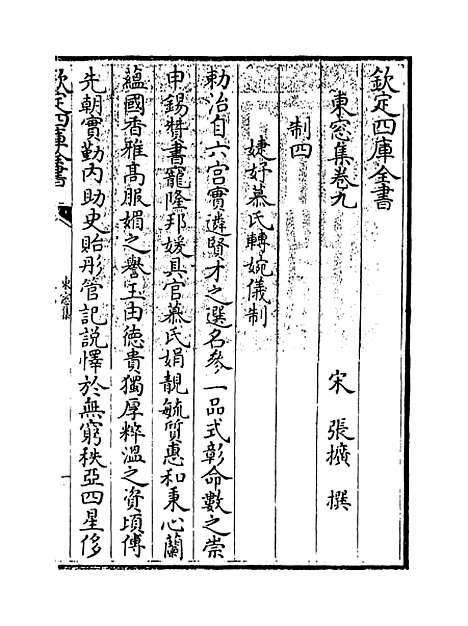 欽定四庫全書
東窓集卷九
宋 張擴 撰
制四
婕妤慕氏轉婉儀制
勅冶自六宫實遴賢才之選名參一品式彰命數之崇
申錫贊書寵隆邦媛具官慕氏娟靚毓質惠和秉心蘭
蘊國香雅髙服媚之譽玉由德貴獨厚粹温之資頃傅
先朝實勤内助史貽彤管記說懌於無窮秩亞四星侈
欽定四庫全書
東窓集
一